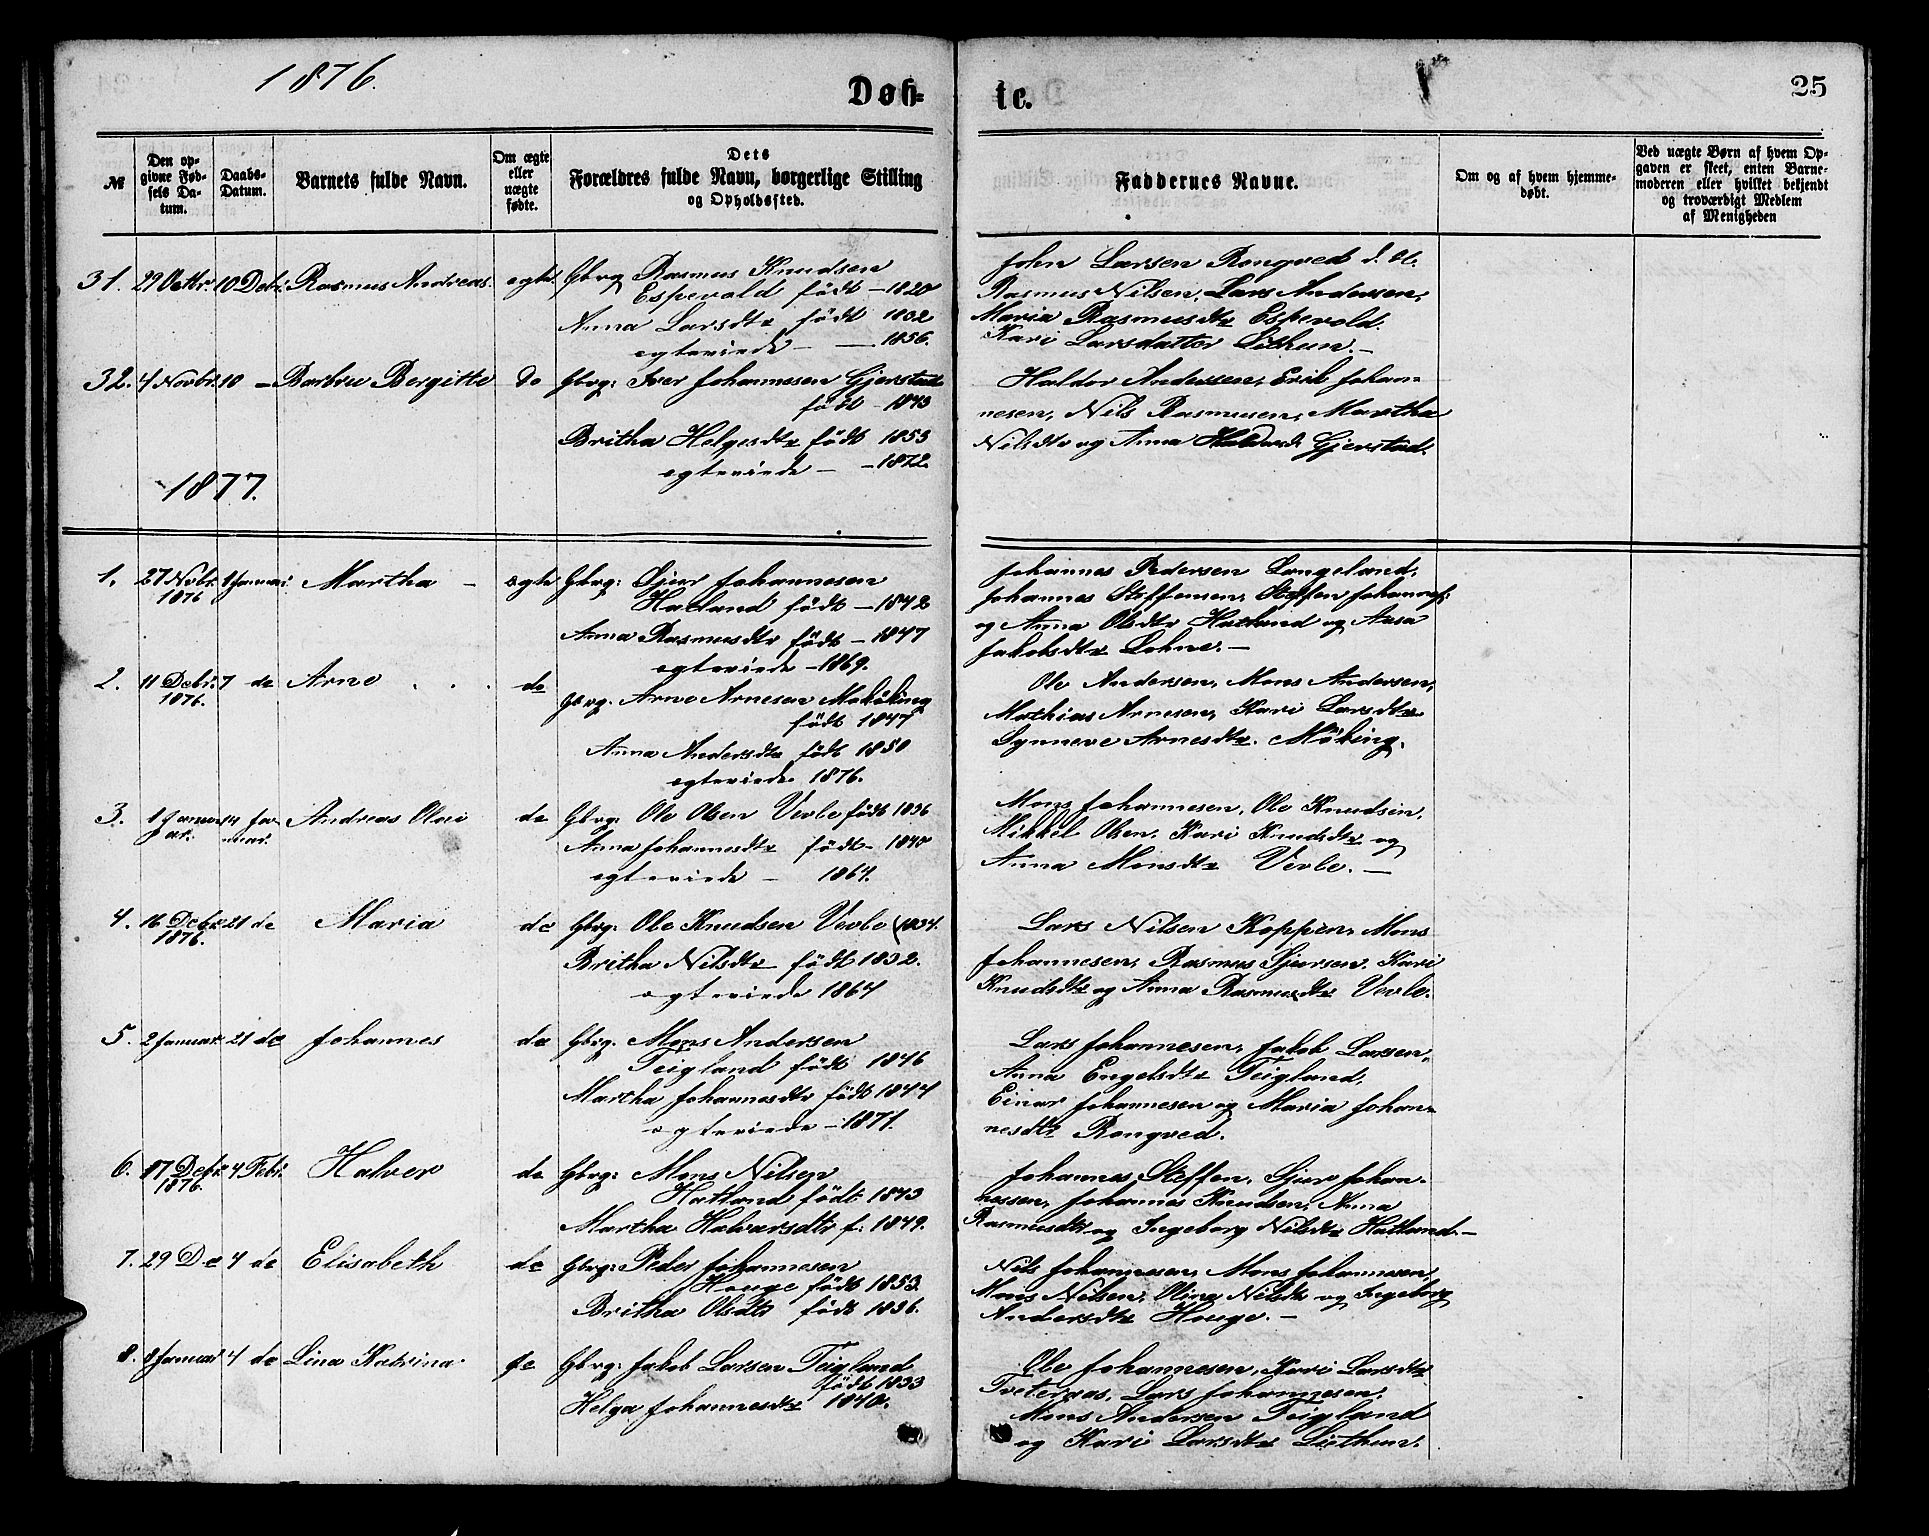 1876.
Døb-
te.
25
№
Den op-
givne Fød-
sels Da-
tum.
Daabs-
Datum.
Barnets fulde Navn.
Om ægte
eller
uægte
fødte.
Dets
Forældres fulde Navn, borgerlige Stilling
og Opholdssted.
Faddernes Navne.
Om og af hvem hjemme-
døbt.
Ved uægte Børn af hvem Op-
gaven er skeet, enten Barne-
moderen eller hvilket bekjendt
og troværdigt Medlem
af Menigheden
31. 29 Octbr. 10 Debr. Rasmus Andreas. egte Gbrg Rasmus Knudsen
Espevold födt - 1820
Anna Larsdtr födt 1832
egteviede - 1856.
John Larsen Rongved d. æ.
Rasmus Nilsen, Lars Andersen,
Maria Rasmusdtr Espevold.
Kari Larsdatter Lithun. -
32. 4 Novbr. 10 - Barbru Bergitte do Gbrg: Iver Johannesen Gjerstad
födt - 1843
Britha Helgesdtr födt 1853
egteviede - 1872.
Haldor Andersen, Erik Johan-
nesen, Nils Rasmusen, Martha
Nilsdtr og Anna Gjerstad.
1877.
1. 27 Novbr. 1 Januar. Martha - egte Gbrg: Sjur Johannesen
1876
Hatland födt - 1842
Anna Rasmusdtr födt - 1847
egteviede - 1869.
Johannes Pedersen Langeland,
Johannes Steffensen, Steffen Johannes.
og Anna Olsdtr Hatland og Ansa
Jakobsdtr Lohne. -
2. 11 Debr. 7 do Arne do Gbrg. Arne Arnesen Möking
1876.
födt 1847
Anna Andersdtr födt 1850
egteviede 1876.
Ole Andersen, Mons Andersen,
Mathias Arnesen, Kari Larsdtr
Synneve Arnesdtr. Möking.
3. 1 Januar. 14 Januar. Andreas Olai do Gbrg: Ole Olsen Verle födt 1836
Anna Johannesdtr födt - 1840
egteviede - 1864.
Mons Johannesen, Ole Knudsen,
Mikkel Olsen, Kari Knudsdtr og
Anna Monsdtr Verle. -
4. 16 Debr. 21 do Maria do Gbrg: Ole Knudsen Verle (1834.
1876.
Britha Nilsdtr födt 1832.
egteviede 1864
Lars Nilsen Koppen, Mons
Johannesen, Rasmus Sjursen, Kari
Knudsdtr og Anna Rasmusdtr Verle.
5. 2 Januar. 21 do Johannes do Gbrg: Mons Andersen
Teigland födt 1846
Martha Johannesdtr födt 1844
egteviede - 1871.
Lars Johannesen, Jakob Larsen,
Anna Engelsdtr Teigland,
Einar Johannesen og Maria Johan-
nesdtr Rongved.
6. 17 Debr. 4 Febr. Halver do Gbrg: Mons Nilsen
1876.
Hatland födt 1843
Martha Halvarsdtr f: 1849.
Johannes Steffen. Sjur Johan-
nessen, Johannes Knudsen, Anna
Rasmusdtr og Ingeborg Nilsdtr Hatland. -
7. 29 De 4 do Elisabeth do Gbrg: Peder Johannesen
Houge födt 1853.
Britha Olsdtr födt 1836.
Nils Johannesen, Mons Johannesen,
Mons Nilsen, Olina Nilsdtr og Ingeborg
Andersdtr Houge. -
8. 8 Januar 4 do Lina Katrina. do Gbrg: Jakob Larsen Teigland
födt 1833
Helga Johannesdtr 1840.
Ole Johannesen, Kari Larsdtr
Tveteraas, Lars Johannesen.
Mons Andersen Teigland
og Kari Larsdtr Lithun.